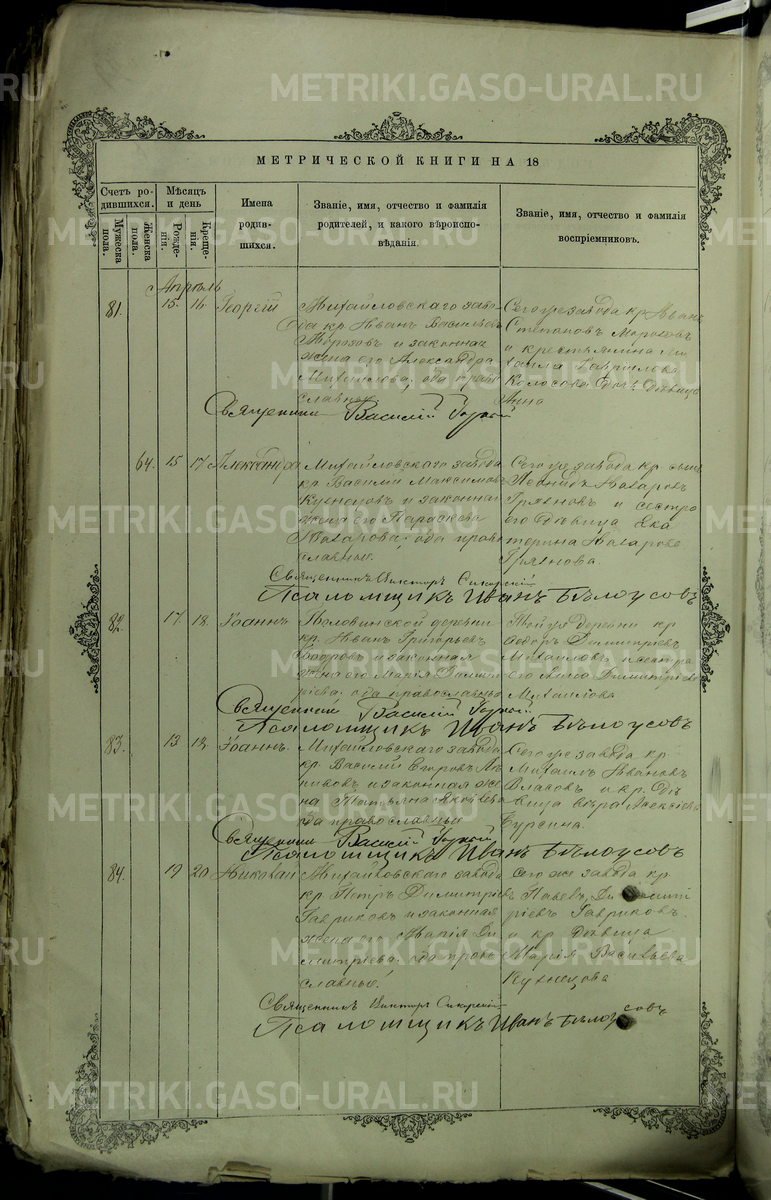 МЕТРИЧЕСКОЙ КНИГИ НА 18
Счетъ ро-
дившихся.
Мѣсяцъ
и день
Мужеска
пола.
Женска
пола.
Рожде-
нія.
Креще-
нія.
Имена
родив-
шихся.
Званіе, имя, отчество и фамилія
родителей, и какого вѣроиспо-
вѣданія.
Званіе, имя, отчество и фамилія
воспріемниковъ.
Апрѣль
81. 15. 16. Георгій
Михайловскаго заво-
да кр. Иванъ Васильевъ
Морозовъ и законная
жена его Александра
Михаилова, оба право
славные
Сего же завода кр Иванъ
Степановъ Морозовъ
и крестьянина
Гаврилова
Колосова дочь дѣвица
Анна
Священникъ Василій
64. 15 17 Александра
Михайловскаго завода
кр. Василій Максимовъ
Кузнецовъ и законная
жена его Параскева
Захарова, оба право
славные.
Сего же завода кр. сынъ
Леонидъ Захаровъ
Грязновъ и сестра
его дѣвица Ека
терина Захарова
Грязнова
Священникъ Викторъ Сикорскій
Псаломщикъ Иванъ Бѣлоусовъ
82. 17 18. Іоаннъ
Половинской деревни
кр. Иванъ Григорьевъ
и законная
жена его Марія Димит
ріева, оба православные
Той же деревни кр
Ѳедоръ Димитріевъ
Михаиловъ и сестра
его Анна Димитріева
Михаилова
Священникъ Василій
Псаломщикъ Иванъ Бѣлоусовъ
83. 13 18. Іоаннъ.
Михайловскаго завода
кр. Василій Егоровъ
и законная же
на Татьяна
оба православные
Сего же завода кр
Михаилъ Ивановъ
Власовъ и кр. дѣ
вица Вѣра Алексѣева
Бурсина.
Священникъ Василій
Псаломщикъ Иванъ Бѣлоусовъ
84. 19 20 Николай
Михайловскаго завода
кр. Петръ Димитріевъ
Гавриковъ и законная
жена его Марія Ди
митріева, оба право
славные
Сего же завода кр.
Павелъ Димит
ріевъ Гавриковъ
и кр. дѣвица
Марія Васильева
Кузнецова
Священникъ Викторъ Сикорскій
Псаломщикъ Иванъ Бѣлоусовъ
METRIKI.GASO-URAL.RU
METRIKI.GASO-URAL.RU
METRIKI.GASO-URAL.RU
METRIKI.GASO-URAL.RU
METRIKI.GASO-URAL.RU
METRIKI.GASO-URAL.RU
METRIKI.GASO-URAL.RU
METRIKI.GASO-URAL.RU